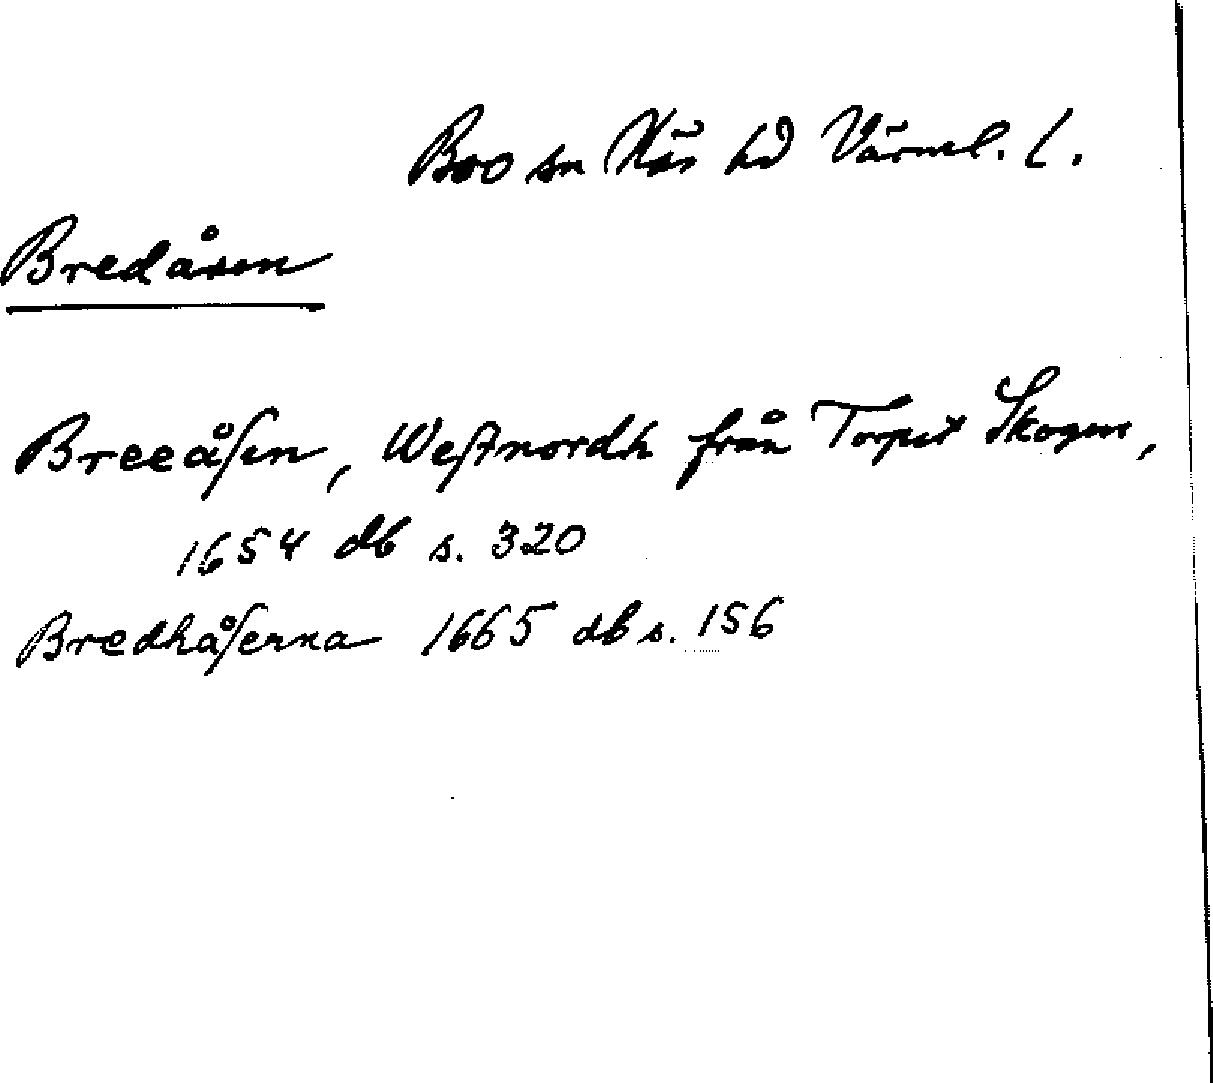 Boo sn Näs hd Värml. l.
Bredåsen
Breeåſen, Weſtnordh från Torpet Skogen,
1654 db s. 320
Bredhåſerna 1665 db s. 156